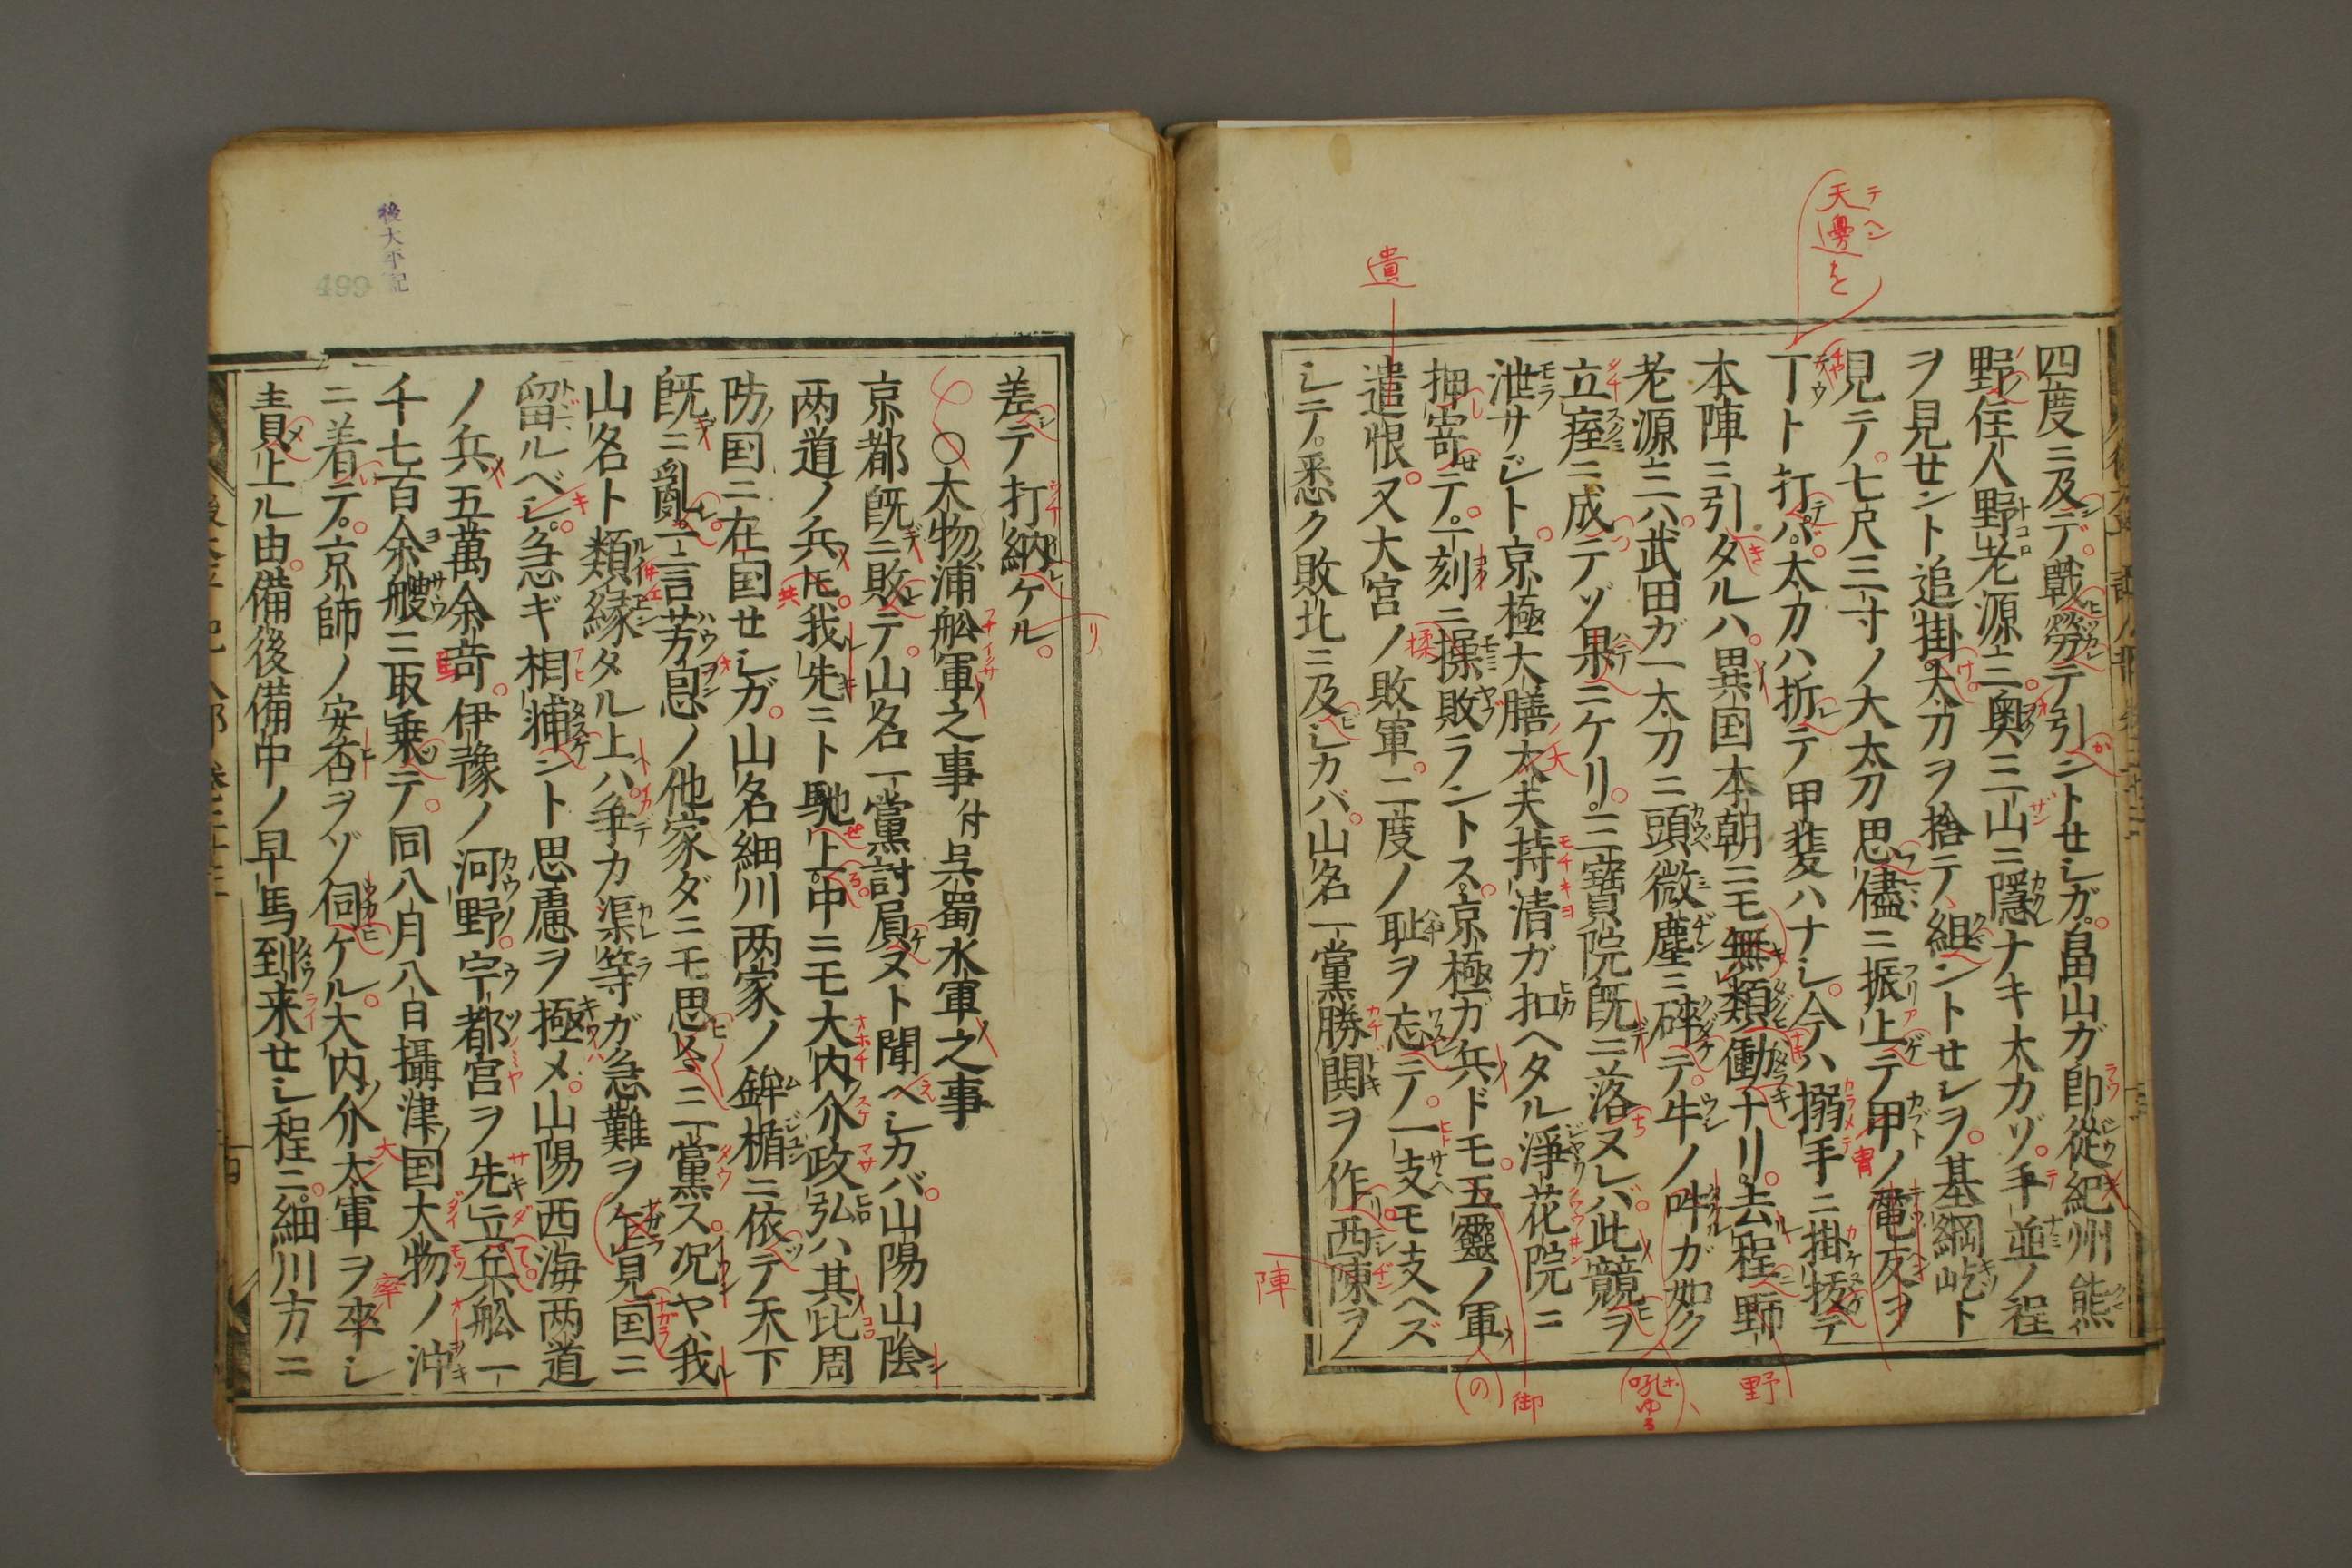 四度ニ及デ戰勞テ引ントセシガ畠山ガ帥從紀州熊
野住人野老源三奥三山ニ隱ナキ太刀ゾ手並ノ程
ヲ見セント追掛太刀ヲ捨テ組ントセシヲ基綱屹ト
見テ七尺三寸ノ大太刀思儘ニ振上テ甲ノ電反ヲ
丁ト打バ太刀ハ折テ甲斐ハナシ今ハ搦手ニ掛援テ
本陣ニ引タルハ異国本朝ニモ無類働ナリ去程野
老源三ハ武田ガ一太刀ニ頭微塵ニ碎テ牛ノ吽ガ如ク
立痓ニ成テゾ果ニケリ三寳院既ニ落ヌレハ此競ヲ
泄サジト京極大膳太夫持清ガ扣ヘタル淨花院ニ
押寄テ一刻ニ操敗ラントス京極ガ兵ドモ五靈ノ軍
遣恨又大宮ノ敗軍二度ノ耻ヲ忘テ一支モ支ヘズ
シテ悉ク敗北ニ及シカバ山名一黨勝閧ヲ作西陳ヲ
差テ打納ケル
○大物浦舩軍之事付呉蜀水軍之事
京都既ニ敗テ山名一黨討屓ヌト聞ヘシカバ山陽山陰
两道ノ兵𪜈我先ニト馳上中ニモ大内介政弘ハ其比周
防国ニ在国セシガ山名細川两家ノ鉾楯ニ依テ天下
既ニ亂一言芳恩ノ他家ダニモ思々ニ一黨ス况ヤ我
山名ト類縁タル上ハ争カ渠等ガ急難ヲ乍見国ニ
留ルベシ急ギ相𢰸ント思慮ヲ極メ山陽西海两道
ノ兵五萬余竒伊豫ノ河野宇都宮ヲ先立兵舩一
千七百余艘ニ取乗テ同八月八日攝津国大物ノ沖
ニ着テ京師ノ安否ヲゾ伺ケル大内介太軍ヲ卒シ
責上ル由備後備中ノ早馬到来セシ程ニ細川方ニ
天邊を
テヘン
遺
陣
の
御
吼ゆる
野
後太平記
499